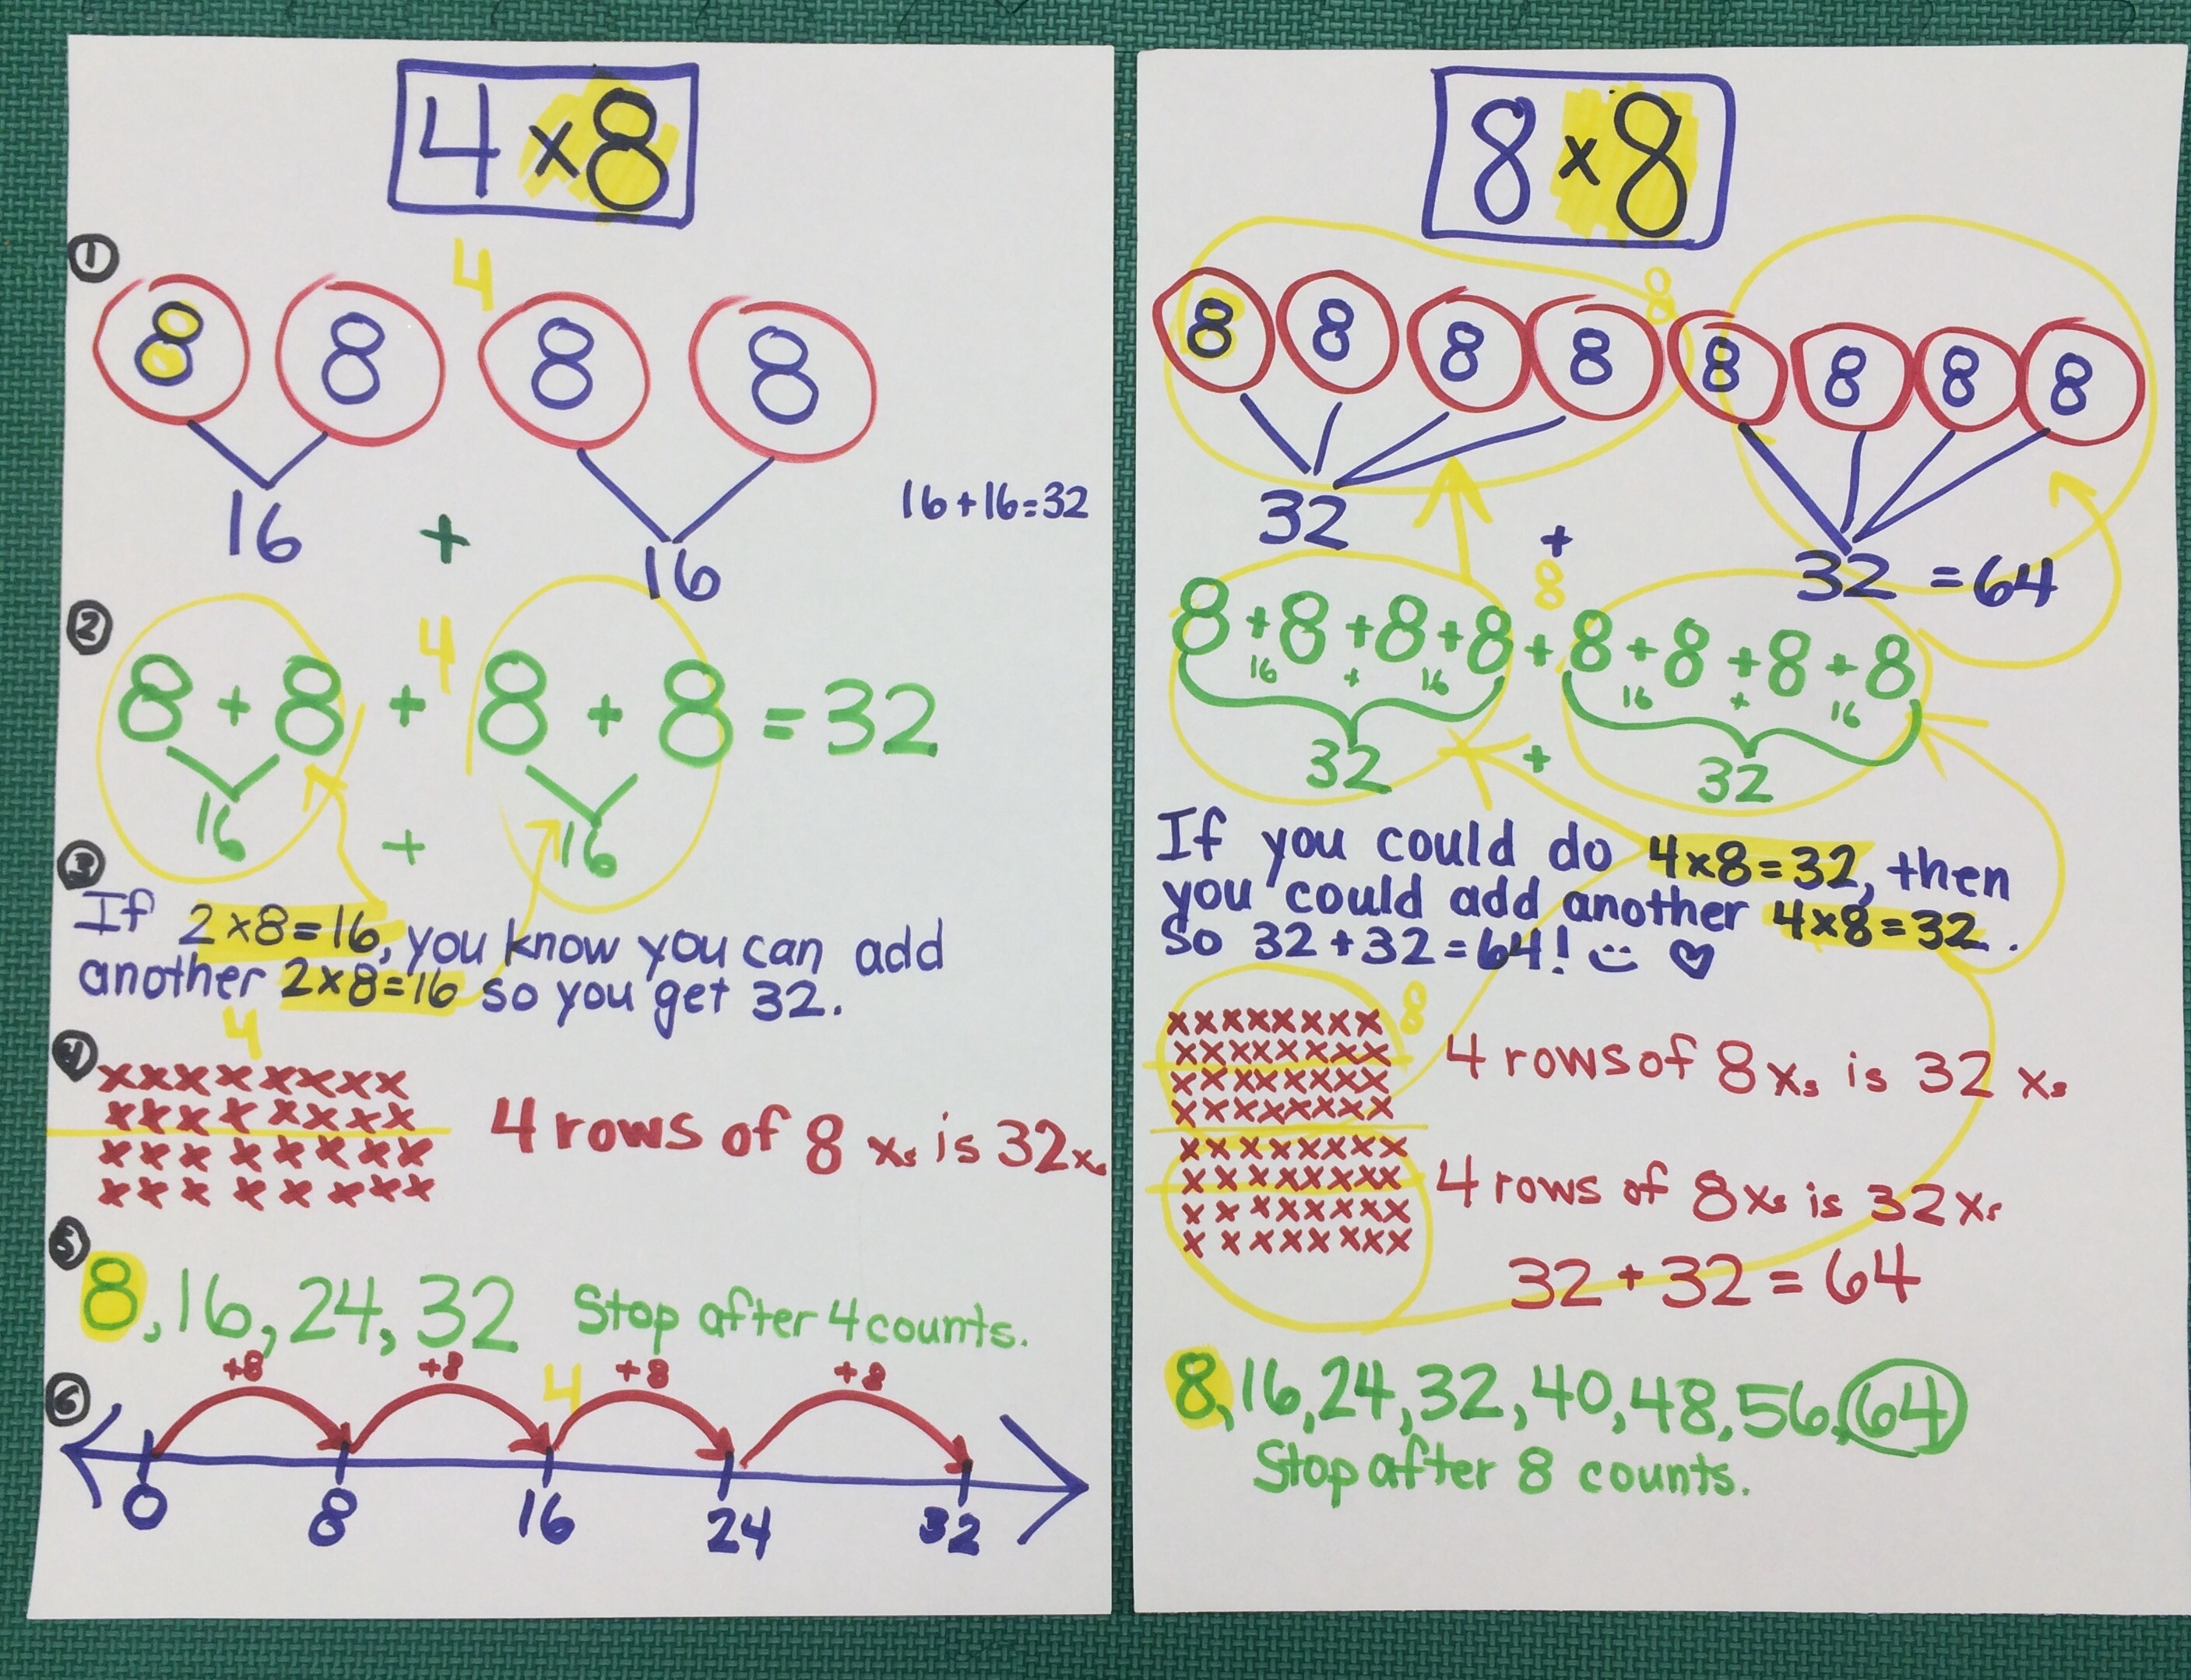 4 x 8
①
4
8 8 8 8
16 + 16
16+16=32
②
4
8 + 8 + 8 + 8 = 32
16 + 16
③
If 2x8=16, you know you can add
another 2x8=16 so you get 32.
4
④
xxxxxxxx
xxxxxxxx
xxxxxxxx
xxxxxxxx
4 rows of 8 xs is 32xs
⑤
8, 16, 24, 32 Stop after 4 counts.
⑥
+8 +8 4 +8 +8
0 8 16 24 32
8 x 8
8
8 8 8 8 8 8 8 8
32 + 32 = 64
8
8 + 8 + 8 + 8 + 8 + 8 + 8 + 8
16 + 16 16 + 16
32 + 32
If you could do 4x8=32, then
you could add another 4x8=32.
So 32+32=64! ♡
8
xxxxxxxx
xxxxxxxx
xxxxxxxx
xxxxxxxx
4 rows of 8xs is 32 xs
xxxxxxxx
xxxxxxxx
xxxxxxxx
xxxxxxxx
4 rows of 8xs is 32xs
32 + 32 = 64
8, 16, 24, 32, 40, 48, 56, 64
Stop after 8 counts.